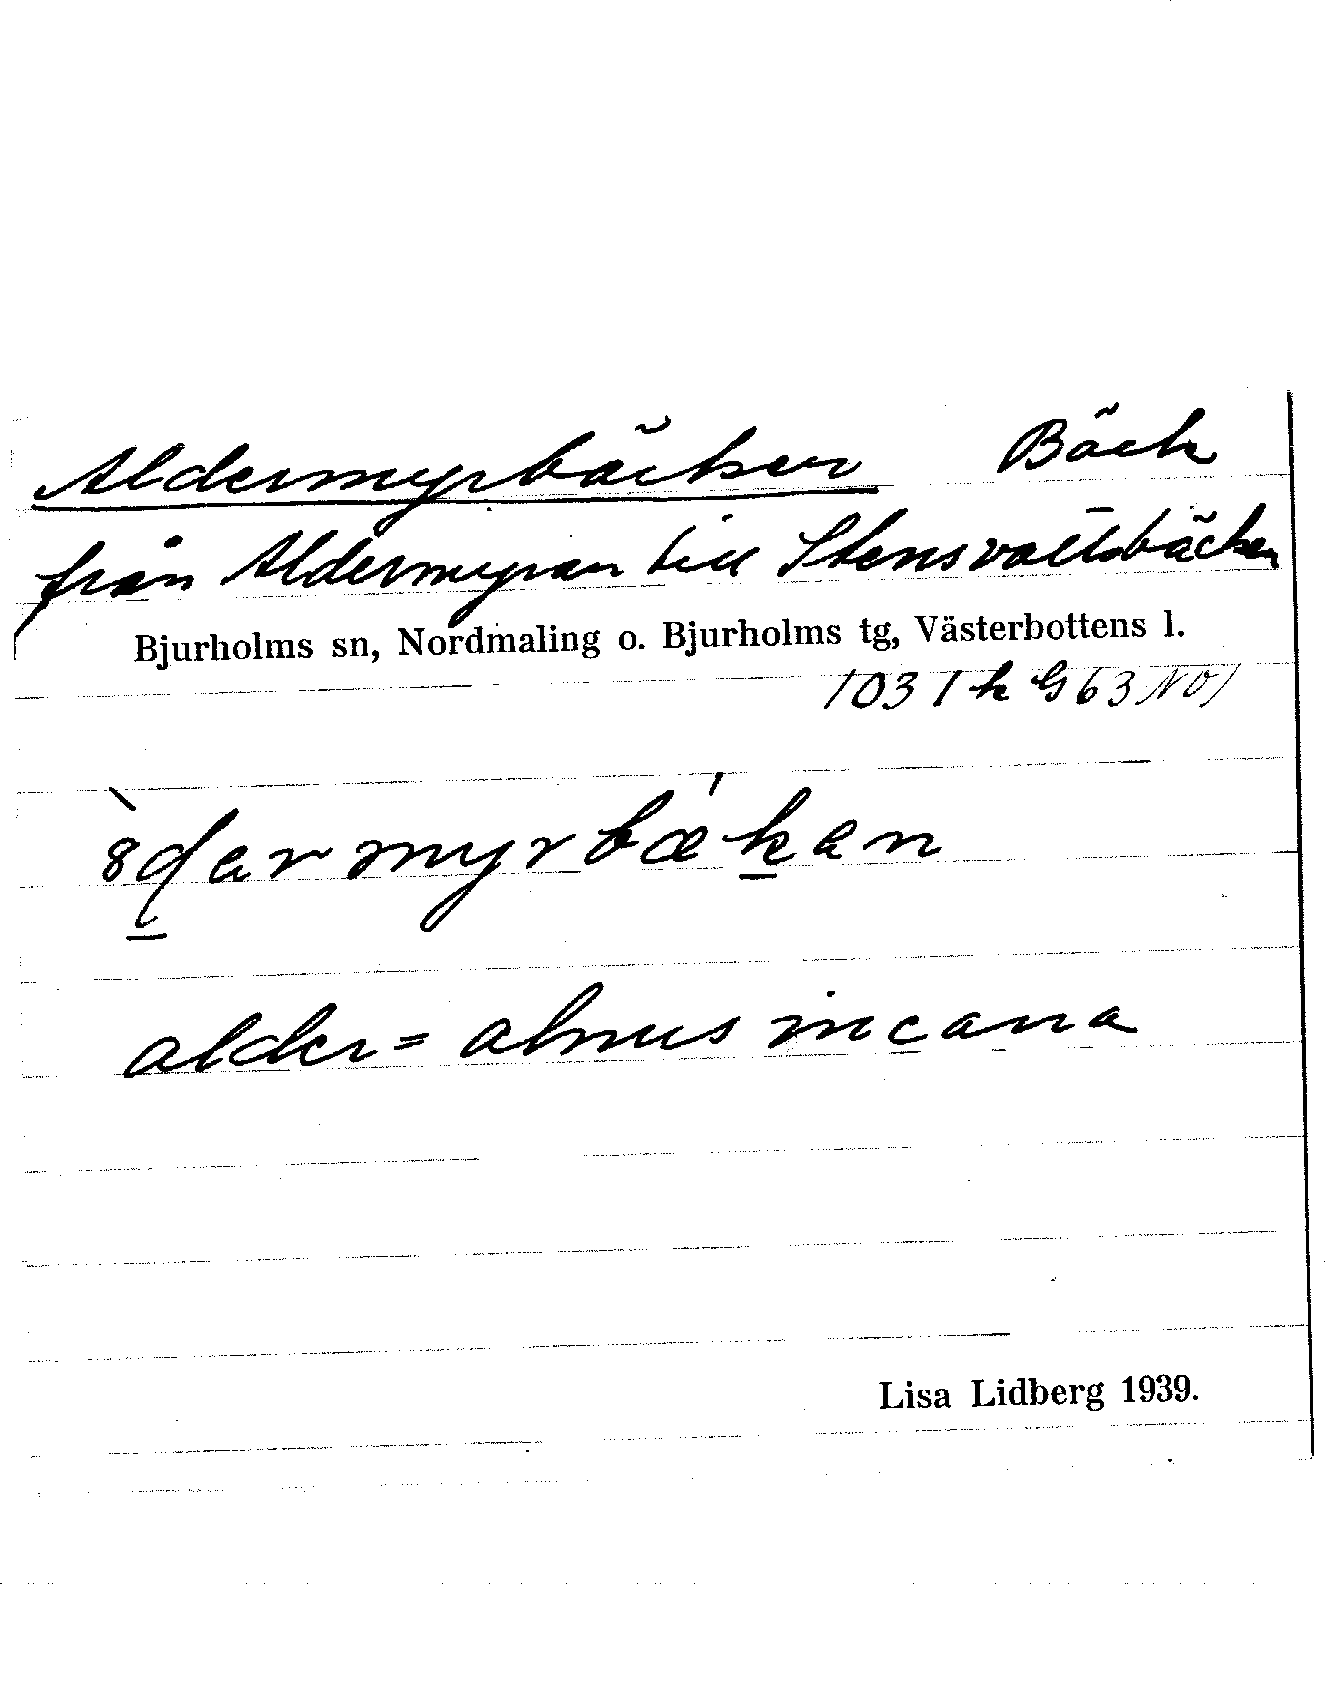 Aldermyrbäcken Bäck
från Aldermyran till Stensvattsbäcken
Bjurholms sn, Nordmaling o. Bjurholms tg, Västerbottens l.
1031 k G 63 NO
alder = alnus incana
Lisa Lidberg 1939.